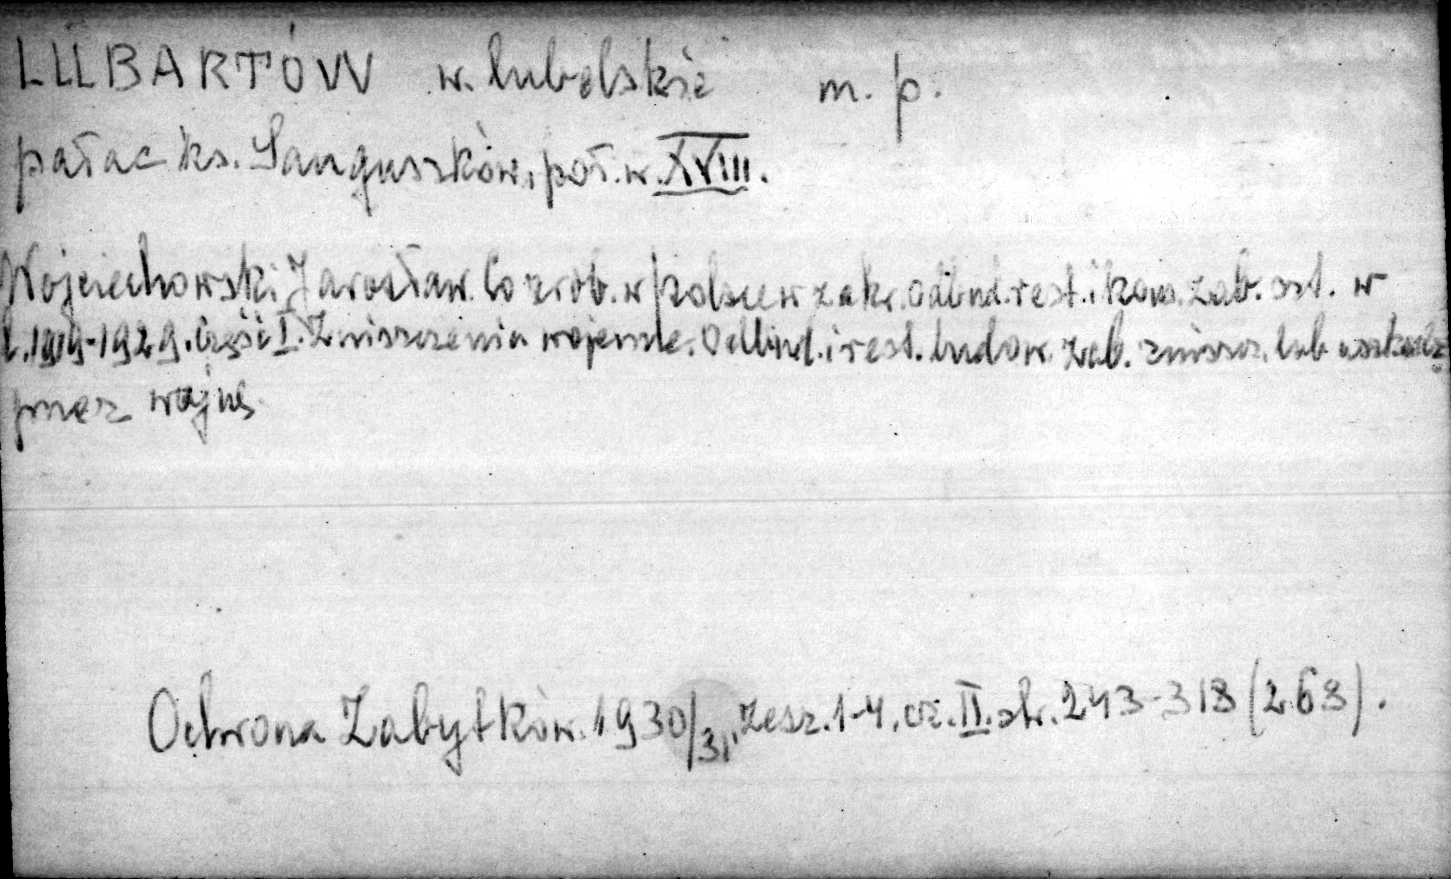 LUBARTÓW w. lubelskie m. p.
pałac ks. Sanguszków, poł. w. XVIII.
Wojciechowski Jarosław. Co zrob. w Polsce w zakr. odbud. rest. i kons. zab. szt. w
l. 1919-1929. Część I. Zniszczenia wojenne. Odbud. i rest. budow. zab. zniszcz. lub uszkodz.
przez wojnę.
Ochrona Zabytków. 1930/31, zesz. 1-4, cz. II. str. 243-318 (268).